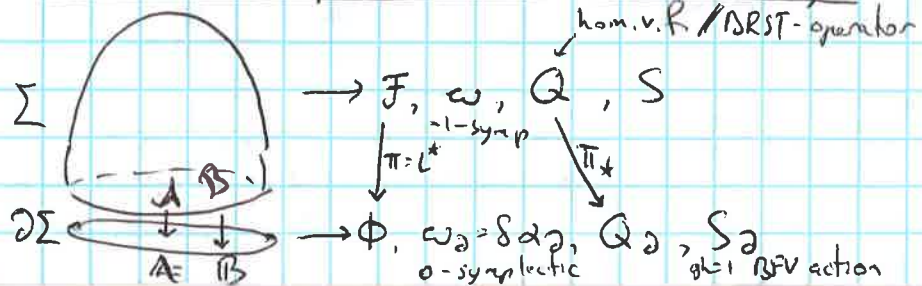 hom. v. f. // BRST-operator
Σ → F, ω, Q, S
-1-symp
A B
π=ι* π*
∂Σ → Φ, ω∂=δα∂, Q∂, S∂
A B 0-symplectic gh=1 BFV action